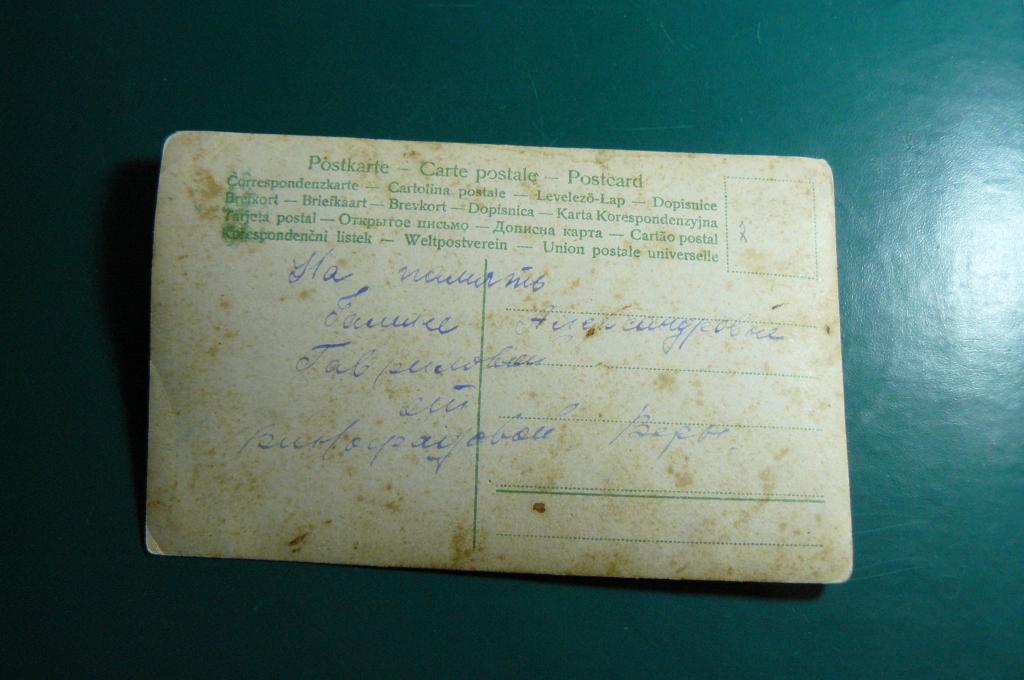 Postkarte – Carte postale – Postcard
Correspondenzkarte – Cartolina postale – Levelező-Lap – Dopisnice
Brefkort – Briefkaart – Brevkort – Dopisnica – Karta Korespondenzyjna
Tarjeta postal – Открытое письмо – Дописна карта – Cartão postal
Korespondenčni listek – Weltpostverein – Union postale universelle
На память
Галине Александровне
Гавриловой
от
Виноградовой Веры.